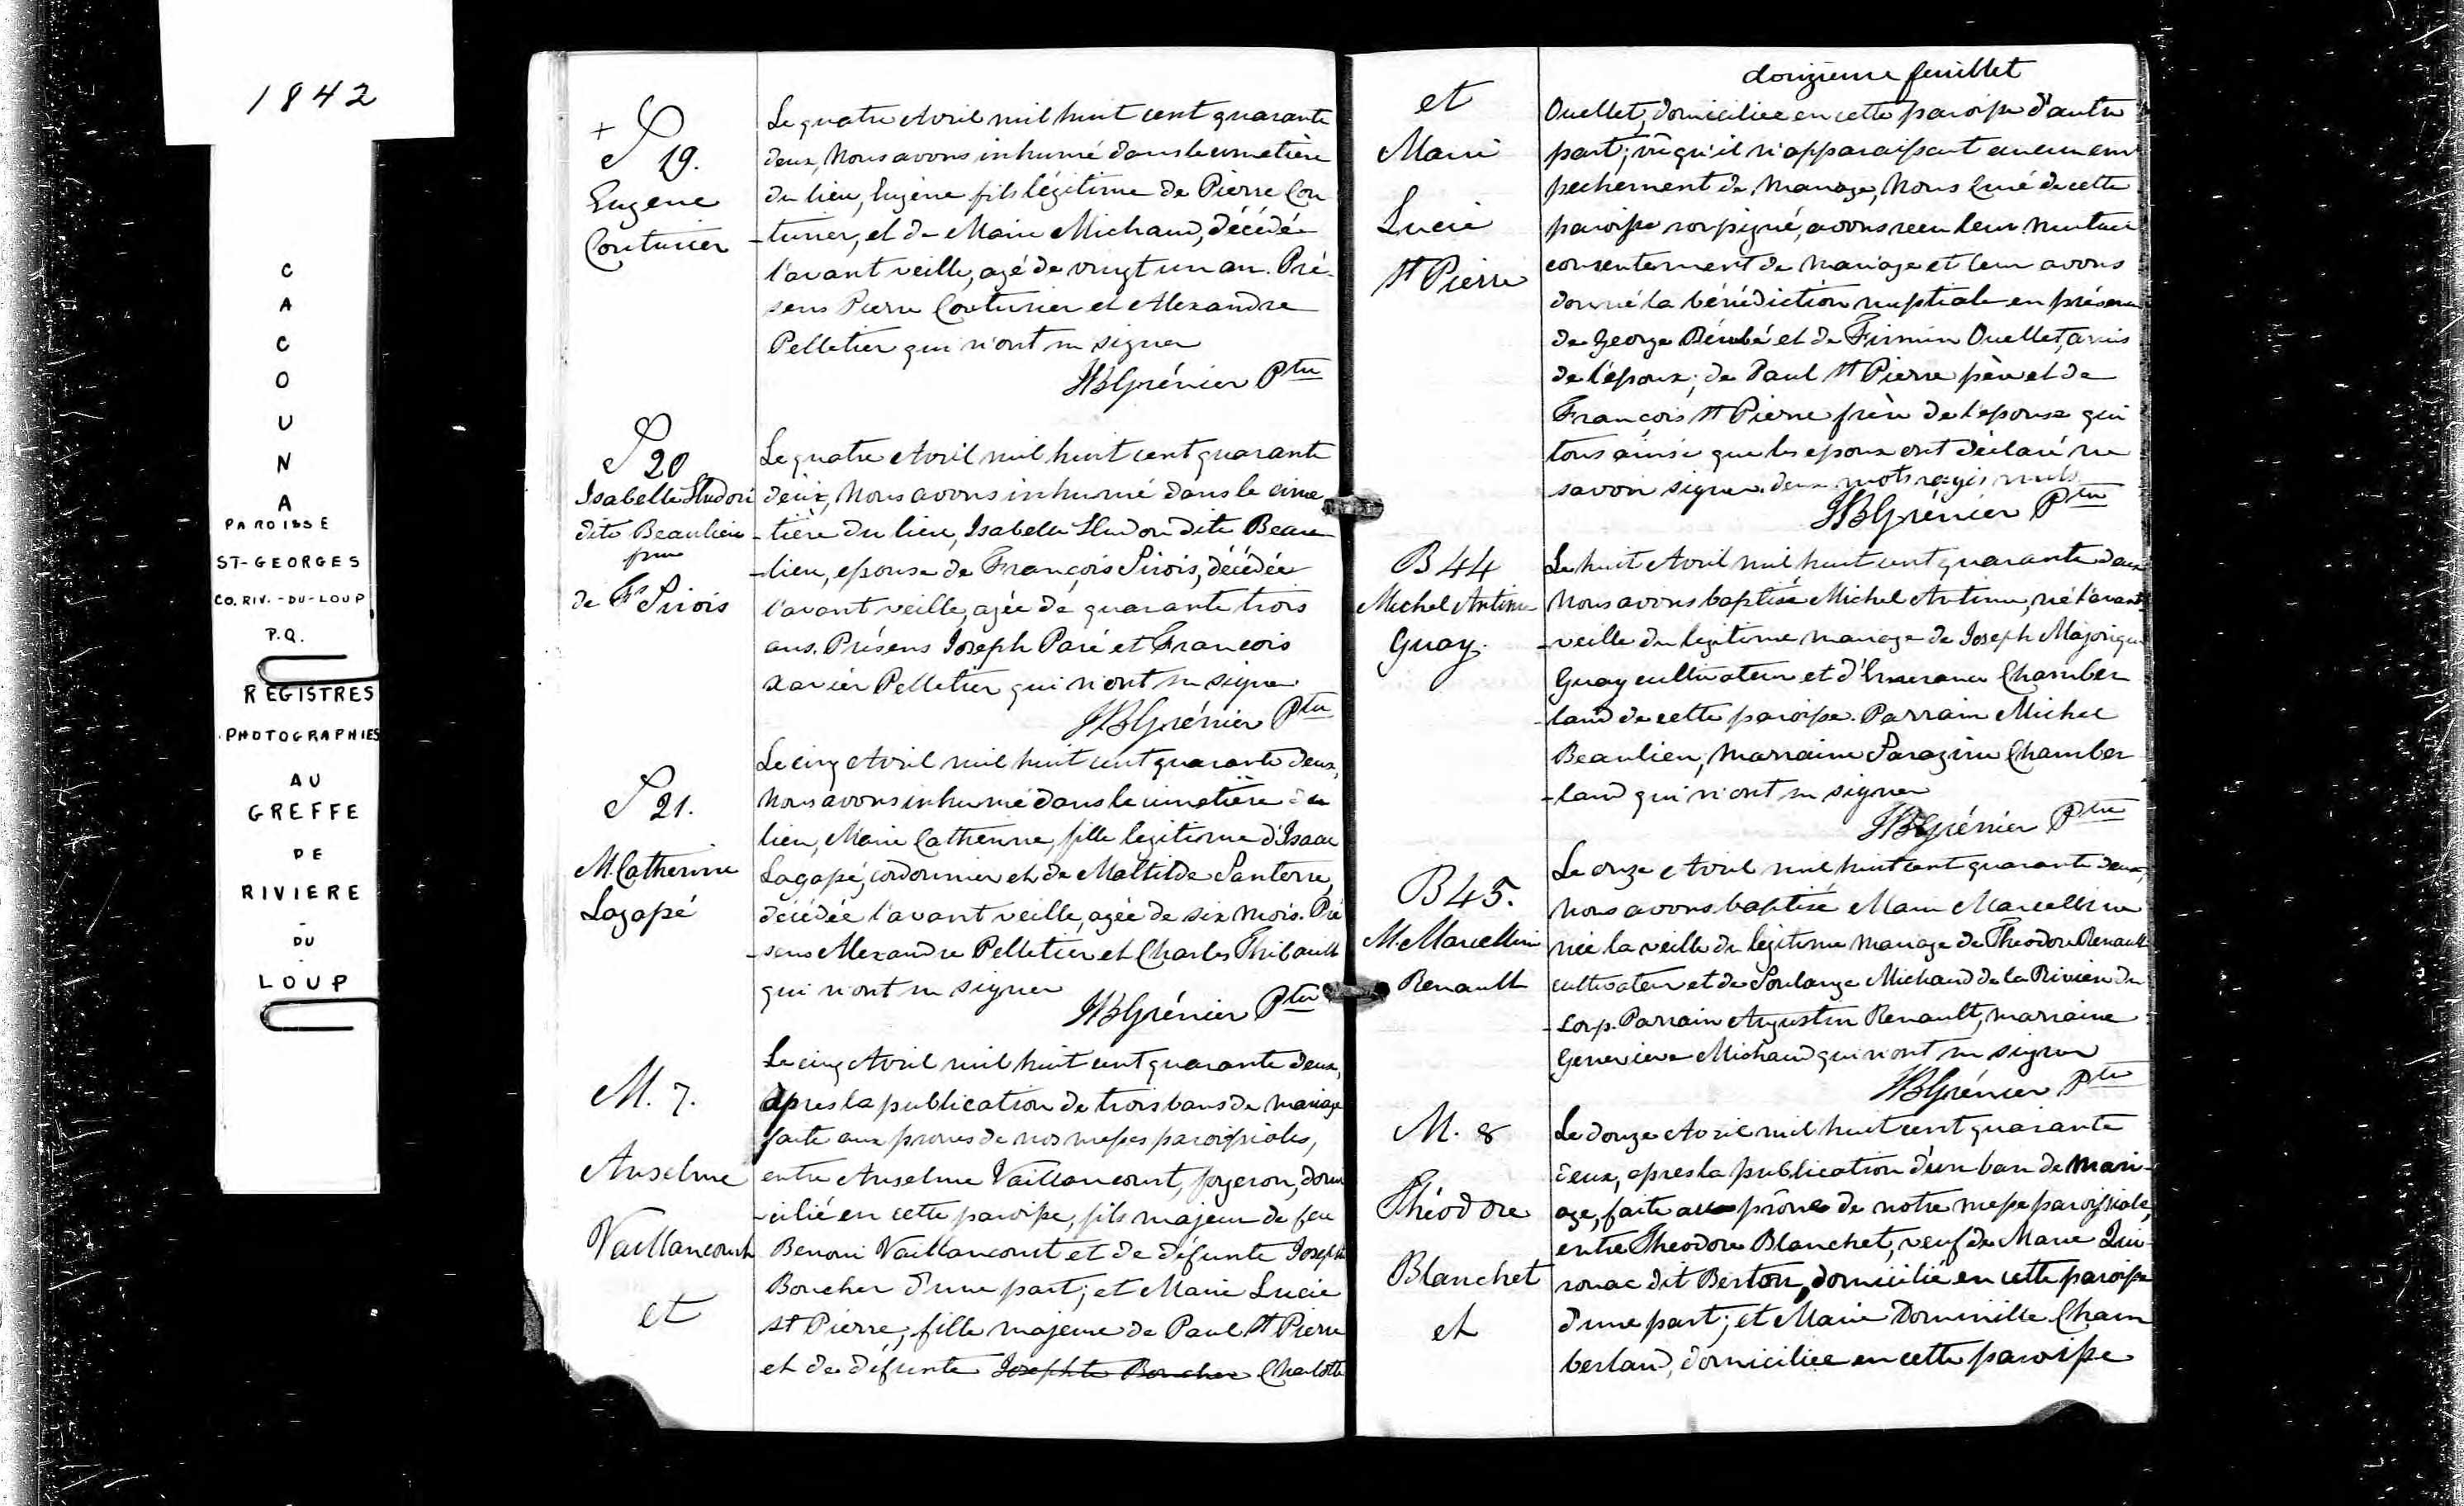 1842
C
A
C
O
U
N
A
PAROISSE
ST-GEORGES
CO. RIV.-DU-LOUP
P.Q.
REGISTRES
PHOTOGRAPHIES
AU
GREFFE
DE
RIVIERE
-
DU
-
LOUP
+ S
19.
Eugene
Couturier
Le quatre Avril mil huit cent quarante
deux, Nous avons inhumé dans le cimetière
du lieu, Eugène fils légitime de Pierre Cou
-turier, et de Marie Michaud, décédé
l'avant veille, agé de vingt un an. Pré-
sens Pierre Couturier et Alexandre
Pelletier qui n'ont su signer
JBGrénier Ptre
S 20
Isabelle Hudon
dite Beaulieu
fme
de Fs Sirois
Le quatre Avril mil huit cent quarante
deux, Nous avons inhumé dans le cime
-tière du lieu, Isabelle Hudon dite Beau
-lieu, epouse de François Sirois, décédée
l'avant veille, agée de quarante trois
ans. Présens Joseph Paré et Francois
Xavier Pelletier qui n'ont su signer
JBGrénier Ptre
S 21.
M. Catherine
Lagapé
Le cinq Avril mil huit cent quarante deux,
Nous avons inhumé dans le cimetière du
lieu, Marie Catherine, fille legitime d'Isaac
Lagapé, cordonnier et de Maltilde Santerre,
décédée l'avant veille, agée de six mois. Pré
-sens Alexandre Pelletier et Charles Thibault
qui n'ont su signer
JBGrénier Ptre
M. 7.
Anselme
Vaillancourt
et
Le cinq Avril mil huit cent quarante deux,
apres la publication de trois bans de mariage
faite aux prones de nos messes paroissiales,
entre Anselme Vaillancourt, forgeron, domi
-cilié en cette paroisse, fils majeur de feu
Benoni Vaillancourt et de défunte Josephte
Boucher d'une part; et Marie Lucie
St Pierre, fille majeure de Paul St Pierre
et de défunte Josephte Boucher Charlotte
douzieme feuillet
et
Marie
Lucie
St Pierre
Ouellet, domiciliee en cette paroisse d'autre
part; vû qu'il n'apparaissant aucun em
pechement de mariage, Nous Curé de cette
paroisse soussigné, avons recu leur mutuel
consentement de mariage et leur avons
donné la bénédiction nuptiale en présence
de George Bérubé et de Firmin Ouellet, amis
de l'époux; de Paul St Pierre père et de
François St Pierre frère de l'epouse qui
tous ainsi que les epoux ont déclaré ne
savoir signer. deux mots rayés nuls
JBGrénier Ptre
B 44
Michel Antime
Guay.
Le huit Avril mil huit cent quarante deux
Nous avons baptisé Michel Antime, né l'avant
-veille du legitime mariage de Joseph Majorique
Guay cultivateur et d'Emerance Chamber
-land de cette paroisse. Parrain Michel
Beaulieu, marraine Sarazine Chamber
-land qui n'ont su signer
JBGrénier Ptre
B 45.
M. Marcelline
Renault
Le onze Avril mil huit cent quarante deux,
Nous avons baptisé Marie Marcelline
née la veille du légitime mariage de Théodore Renault
cultivateur et de Soulange Michaud de la Riviere du
-Loup. Parrain Augustin Renault, marraine
Genevieve Michaud qui n'ont su signer
JBGrénier Ptre
M. 8
Théodore
Blanchet
et
Le douze Avril mil huit cent quarante
deux, apres la publication d'un ban de mari-
age, faite au prône de notre messe paroissiale,
entre Theodore Blanchet, veuf de Marie Qui-
rouac dit Berton, domicilié en cette paroisse
d'une part; et Marie Dominille Cham
berland, domiciliee en cette paroisse